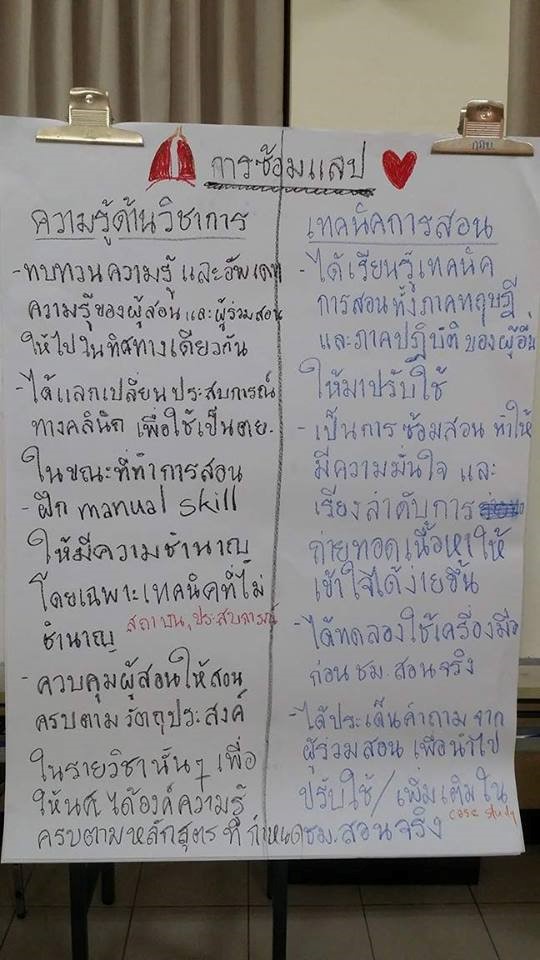 การซ้อมแลป
ความรู้ด้านวิชาการ
- ทบทวนความรู้ และอัพเดท
ความรู้ของผู้สอน และผู้ร่วมสอน
ให้ไปในทิศทางเดียวกัน
- ได้แลกเปลี่ยนประสบการณ์
ทางคลินิก เพื่อใช้เป็นตย.
ในขณะที่ทำการสอน
- ฝึก manual skill
ให้มีความชำนาญ
โดยเฉพาะเทคนิคที่ไม่
ชำนาญ สถาบัน, ประสบการณ์
- ควบคุมผู้สอนให้สอน
ครบตามวัตถุประสงค์
ในรายวิชานั้นๆ เพื่อ
ให้นศ. ได้องค์ความรู้
ครบตามหลักสูตรที่กำหนด
เทคนิคการสอน
- ได้เรียนรู้เทคนิค
การสอนทั้งภาคทฤษฎี
และภาคปฏิบัติ ของผู้อื่น
ให้มาปรับใช้
- เป็นการซ้อมสอน ทำให้
มีความมั่นใจ และ
เรียงลำดับการ
ถ่ายทอดเนื้อหาให้
เข้าใจได้ง่ายขึ้น
- ได้ทดลองใช้เครื่องมือ
ก่อน ชม. สอนจริง
- ได้ประเด็นคำถาม จาก
ผู้ร่วมสอน เพื่อนำไป
ปรับใช้/เพิ่มเติมใน
ชม. สอนจริง case study